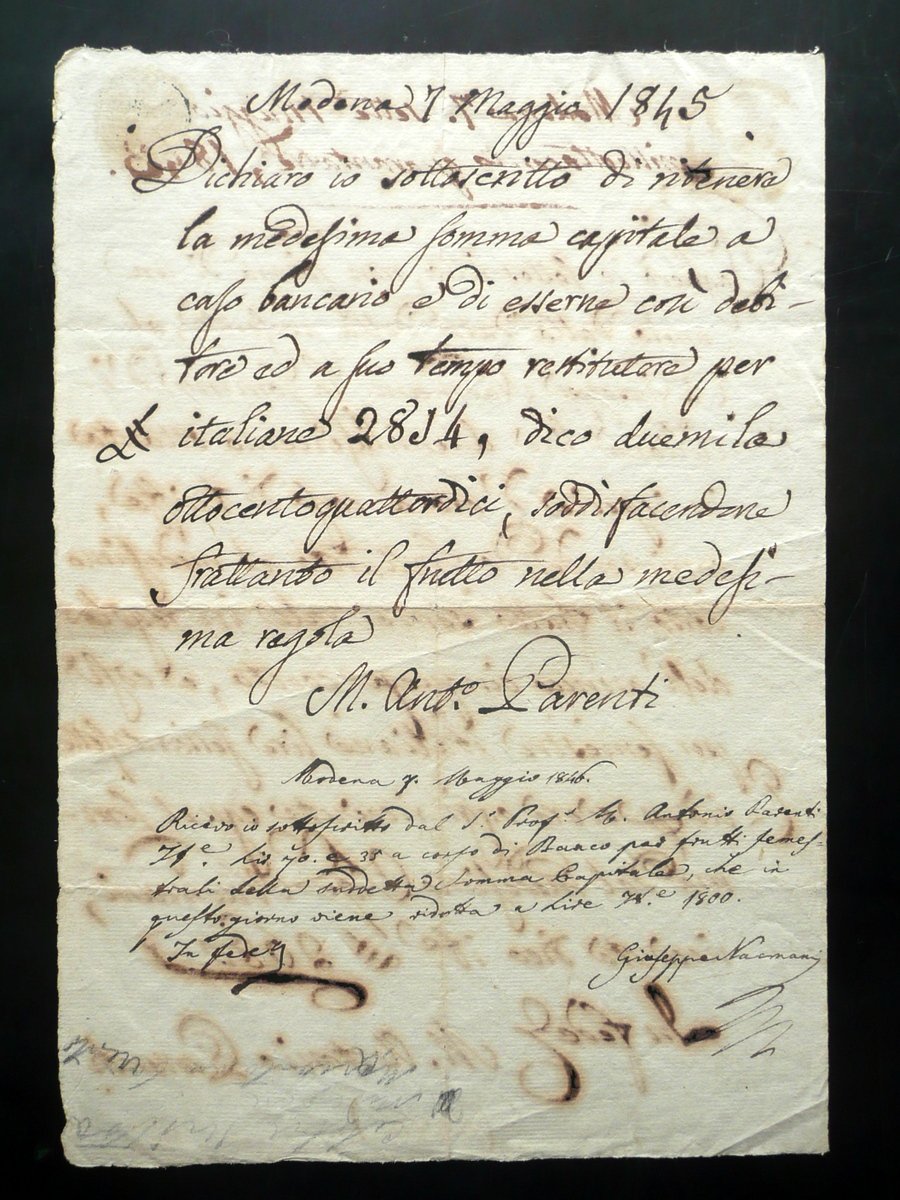 Modena 7 Maggio 1845
Dichiaro io sottoscritto di ritenere
la medesima somma capitale a
caso bancario e di esserne così debi-
tore ed a suo tempo restitutore per
italiane 2814, dico duemila
ottocentoquattordici, soddisfacendone
frattanto il frutto nella medesi-
ma regola
M. Ant.o Parenti
Modena 7. Maggio 1846.
Ricevo io sottoscritto dal S.r Prof.r M. Antonio Parenti
It.e Lir 70. e 35 a corso di Banco per frutti semes-
trali della suddetta Somma Capitale, che in
questo giorno viene ridotta a Lire It.e 1800.
In fede
Giuseppe